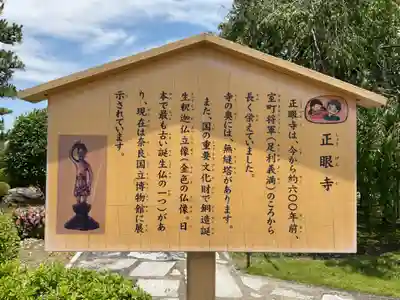 正眼寺
しょうげんじ
正眼寺は、今から約六〇〇年前、
室町将軍（足利義満）のころから
長く伝えていました。
寺の奥には、無縫塔があります。
また、国の重要文化財で銅造誕
生釈迦仏立像（金色の仏像。日
本で最も古い誕生仏の一つ）があ
り、現在は奈良国立博物館に展
示されています。